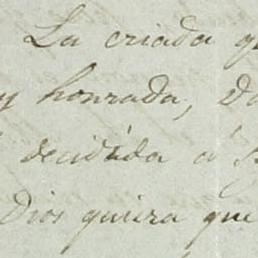 La criada q
y honrada, Do
decidida a' s
Dios quiera que